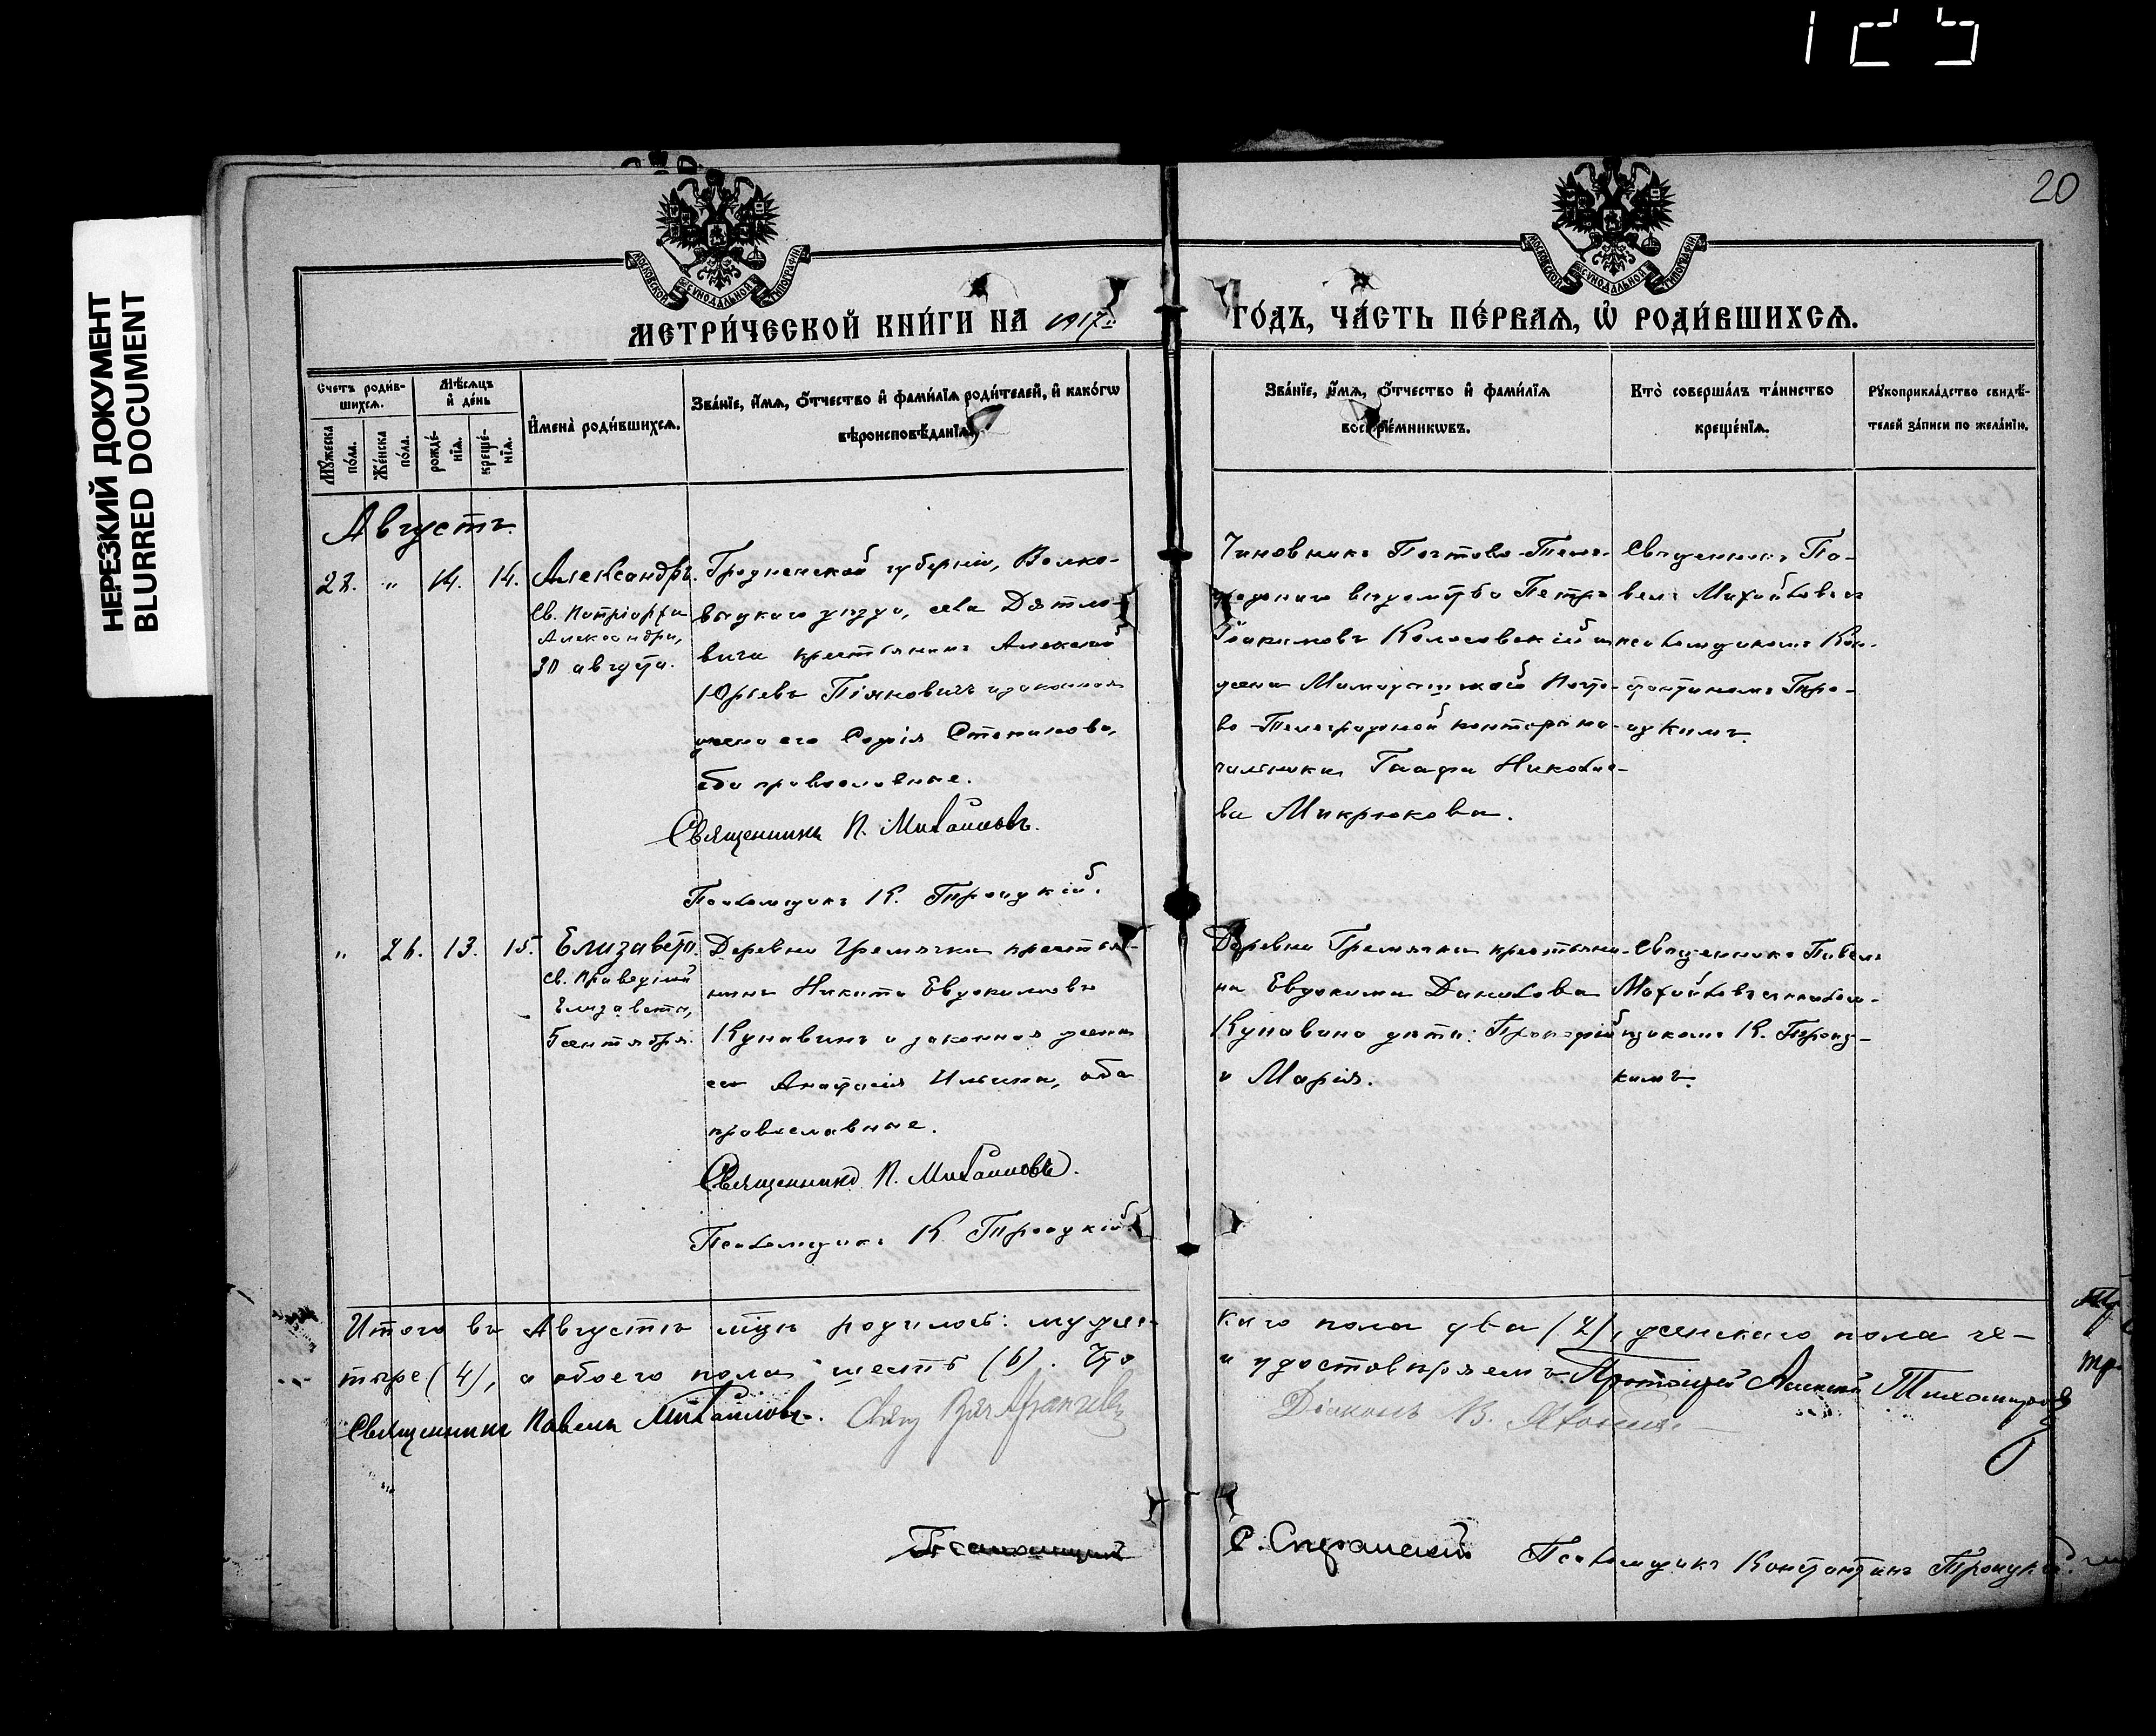 125
20
НЕРЕЗКИЙ ДОКУМЕНТ
BLURRED DOCUMENT
МОСКОВСКОЙ СѴНОДАЛЬНОЙ ТИПОГРАФІИ
МОСКОВСКОЙ СѴНОДАЛЬНОЙ ТИПОГРАФІИ
МЕТРИ́ЧЕСКОЙ КНИ́ГИ НА 1917й
ГО́ДЪ, ЧА́СТЬ ПЕ́РВАѦ, Ѡ РОДИ́ВШИХСѦ.
Счетъ роди́в-
шихсѧ.
Мꙋ́жеска
по́ла.
Же́нска
по́ла.
Мѣ́сѧцъ
и҆ де́нь
рожде́-
нїѧ.
креще́-
нїѧ.
И҆мена̀ роди́вшихсѧ.
Зва́нїе, и҆́мѧ, ѻ҆́тчество и҆ фами́лїѧ роди́телей, и҆ како́гѡ
вѣроисповѣ́данїѧ.
Зва́нїе, и҆́мѧ, ѻ҆́тчество и҆ фами́лїѧ
воспрїе́мникѡвъ.
Кто̀ соверша́лъ та́инство
креще́нїѧ.
Рꙋкоприкла́дство свидѣ́-
телей за́писи по жела́нїю.
Августъ.
22. " 14. 14. Александръ.
Св. Патріарха
Александра,
30 августа.
Гродненской губерніи, Волко-
выскаго уѣзда, села Дятло-
вичи крестьянинъ Алексѣй
Юрьевъ Піяновичъ и законная
жена его Софія Степанова,
оба православные.
Священникъ П. Михайловъ.
Псаломщикъ К. Троицкій.
Чиновникъ Почтово-Теле-
графнаго вѣдомства Петръ
Іоакимовъ Колосовскій и
жена Почто-
во-Телеграфной конторы на-
чальника Николае-
ва Микрюкова.
Священникъ Па-
велъ Михайловъ съ
псаломщикомъ Кон-
стантиномъ Трo-
ицкимъ.
" 26. 13. 15. Елизавета.
Св. Праведной
Елизаветы,
5 сентября.
Деревни Гремячки крестья-
нинъ Никита Евдокимовъ
Кунавинъ и законная жена
его Анастасія Ильина, оба
православные.
Священникъ П. Михайловъ.
Псаломщикъ К. Троицкій.
Деревни Гремячки крестьяни-
на Евдокима Данилова
Кунавина дѣти:
и Марія.
Священникъ Павелъ
Михайловъ съ псалом-
щикомъ К. Троиц-
кимъ.
Итого въ Августѣ м-цѣ родилось: мужес-
каго пола два (2), женскаго пола че-
тыре (4), а обоего пола шесть (6). Что
и удостовѣряемъ Протоіерей Алексѣй Тихомировъ
Священникъ Павелъ Михайловъ.
Діаконъ В.
С. Сперанскій Псаломщикъ Константинъ Троицкій.